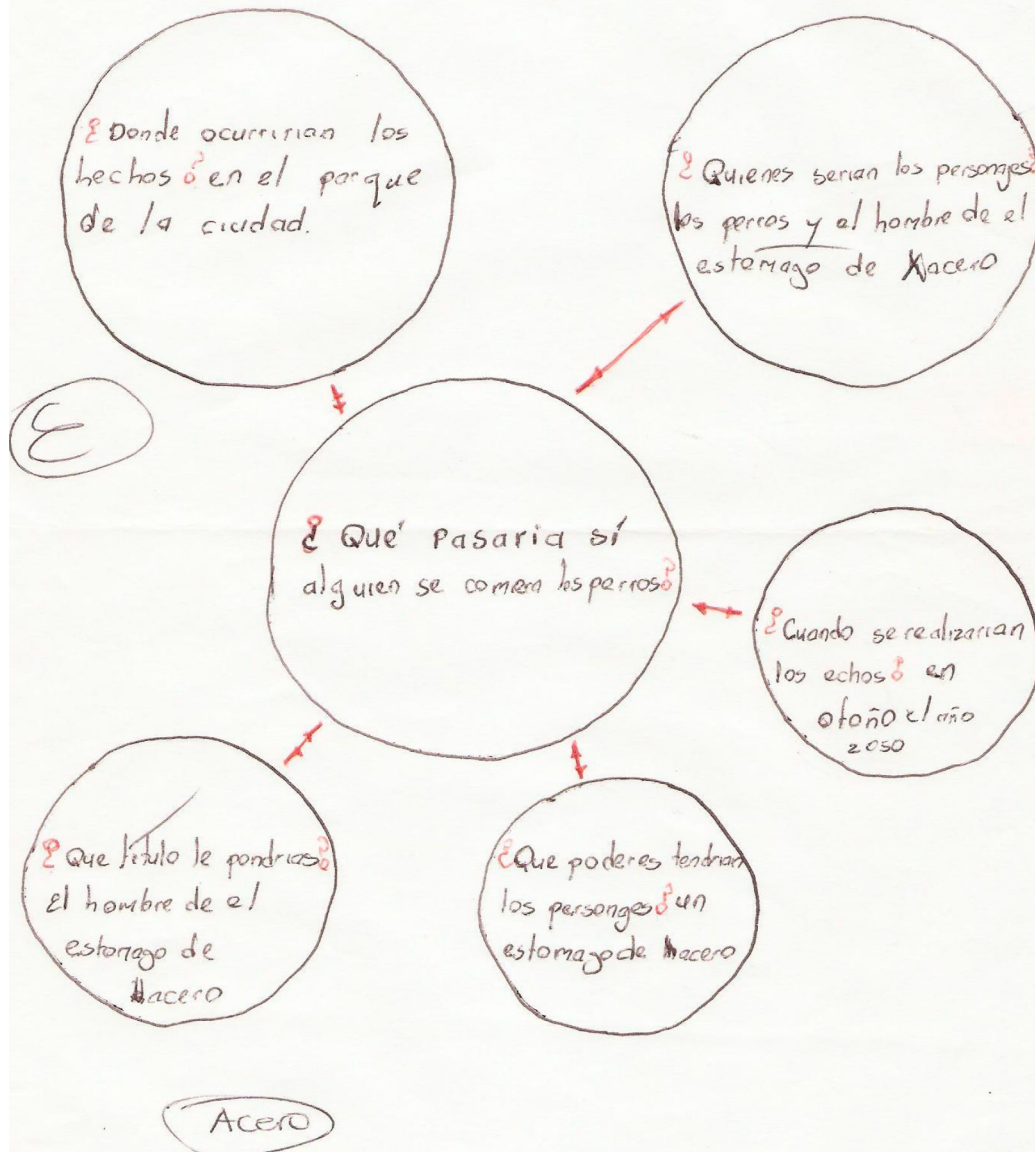 ¿Donde ocurririan los
hechos? en el parque
de la ciudad.
¿Quienes serian los personges?
los perros y el hombre de el
estomago de Xacero
E
¿Qué pasaria sí
alguien se comiera los perros?
¿Cuando se realizarian
los echos? en
otoño el año
2050
¿Que título le pondrias?
El hombre de el
estomago de
Hacero
¿Que poderes tendrian
los personges? un
estomago de hacero
Acero